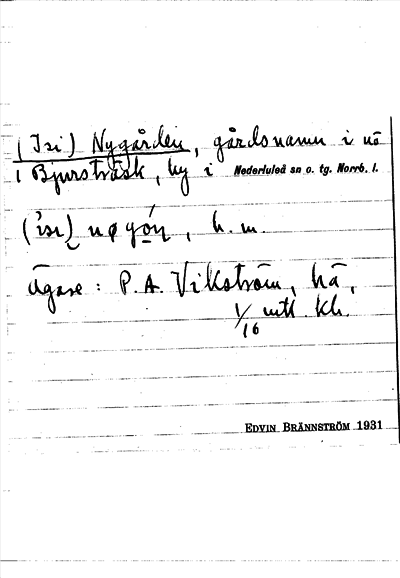 (Isi) Nygården, gårdsnamn i nö
i Bjursträsk, by i Nederluleå sn o. tg. Norrb. l.
h. m.
Ägare: P. A. Vikström, hä,
1/16 mtl kh.
EDVIN BRÄNNSTRÖM 1931